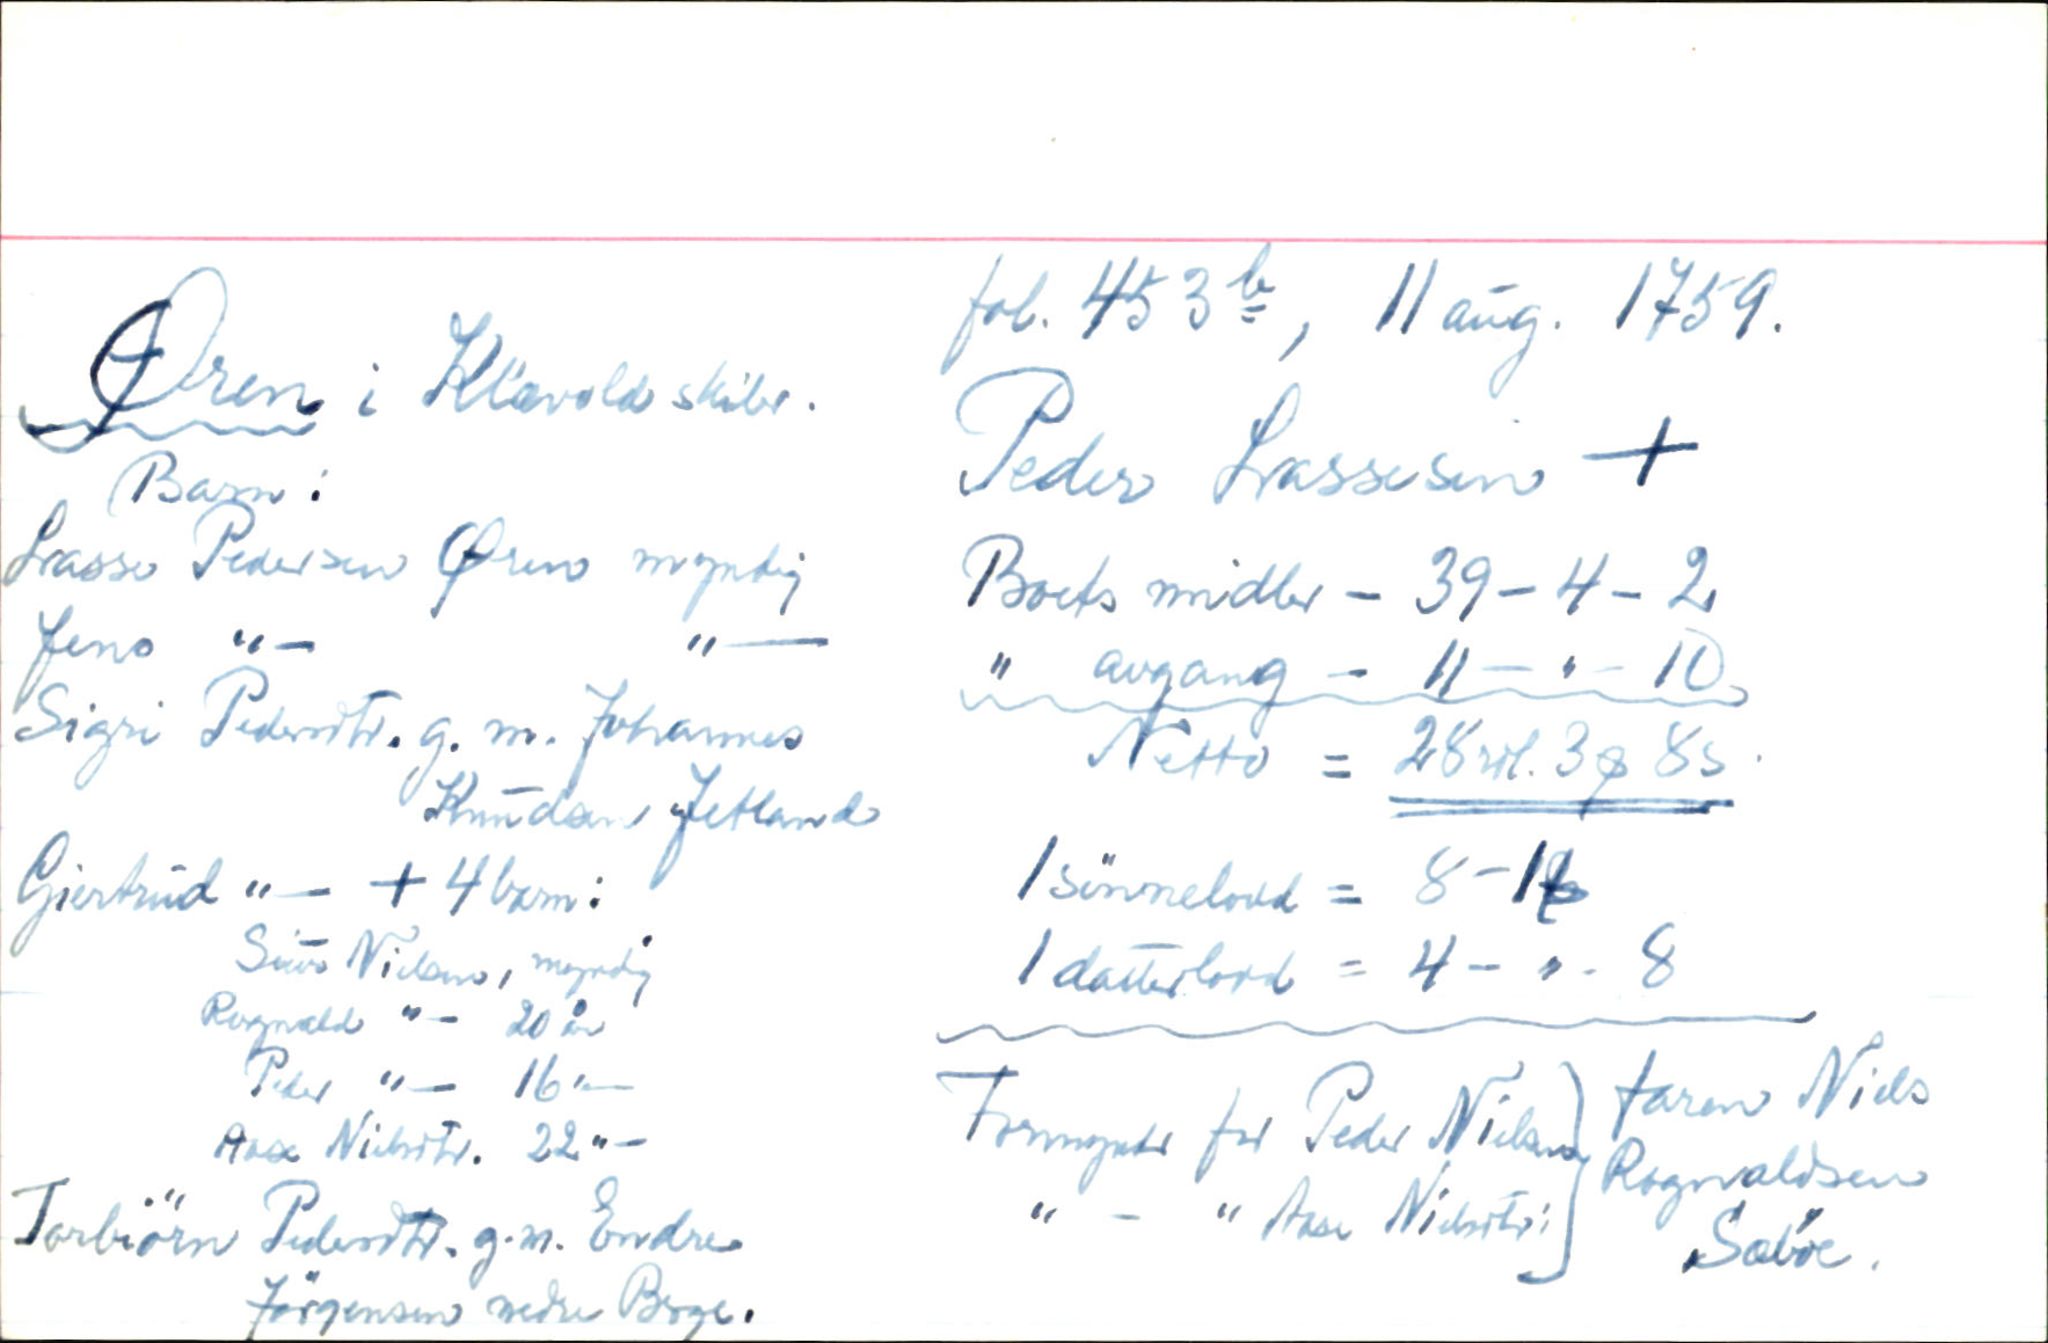 Øren i Klævold skibr.
Barn:
Lasse Pedersen Øren myndig
Jens "— "—
Sigri Pedersdtr. g. m. Johannes
Knudsen Jetland
Giertrud "— + 4 barn:
Siur Nielsen, myndig
Rognald "— 20 år
Peder "— 16 "—
Aase Nielsdtr. 22 "—
Torbiörn Pedersdtr. g.m. Endre
Jörgensen nedre Berge.
fol. 453 b, 11 aug. 1759.
Peder Lassesen +
Boets midler — 39 — 4 — 2
" avgang — 11 — " — 10
Netto = 28 rdl. 3 ƒ 8 s.
1 sönnelodd = 8 — 1
1 datterlodd = 4 — " — 8
Formynder for Peder Nielsen
" — " Aase Nielsdtr:
faren Niels
Rognaldsen
Sæböe.